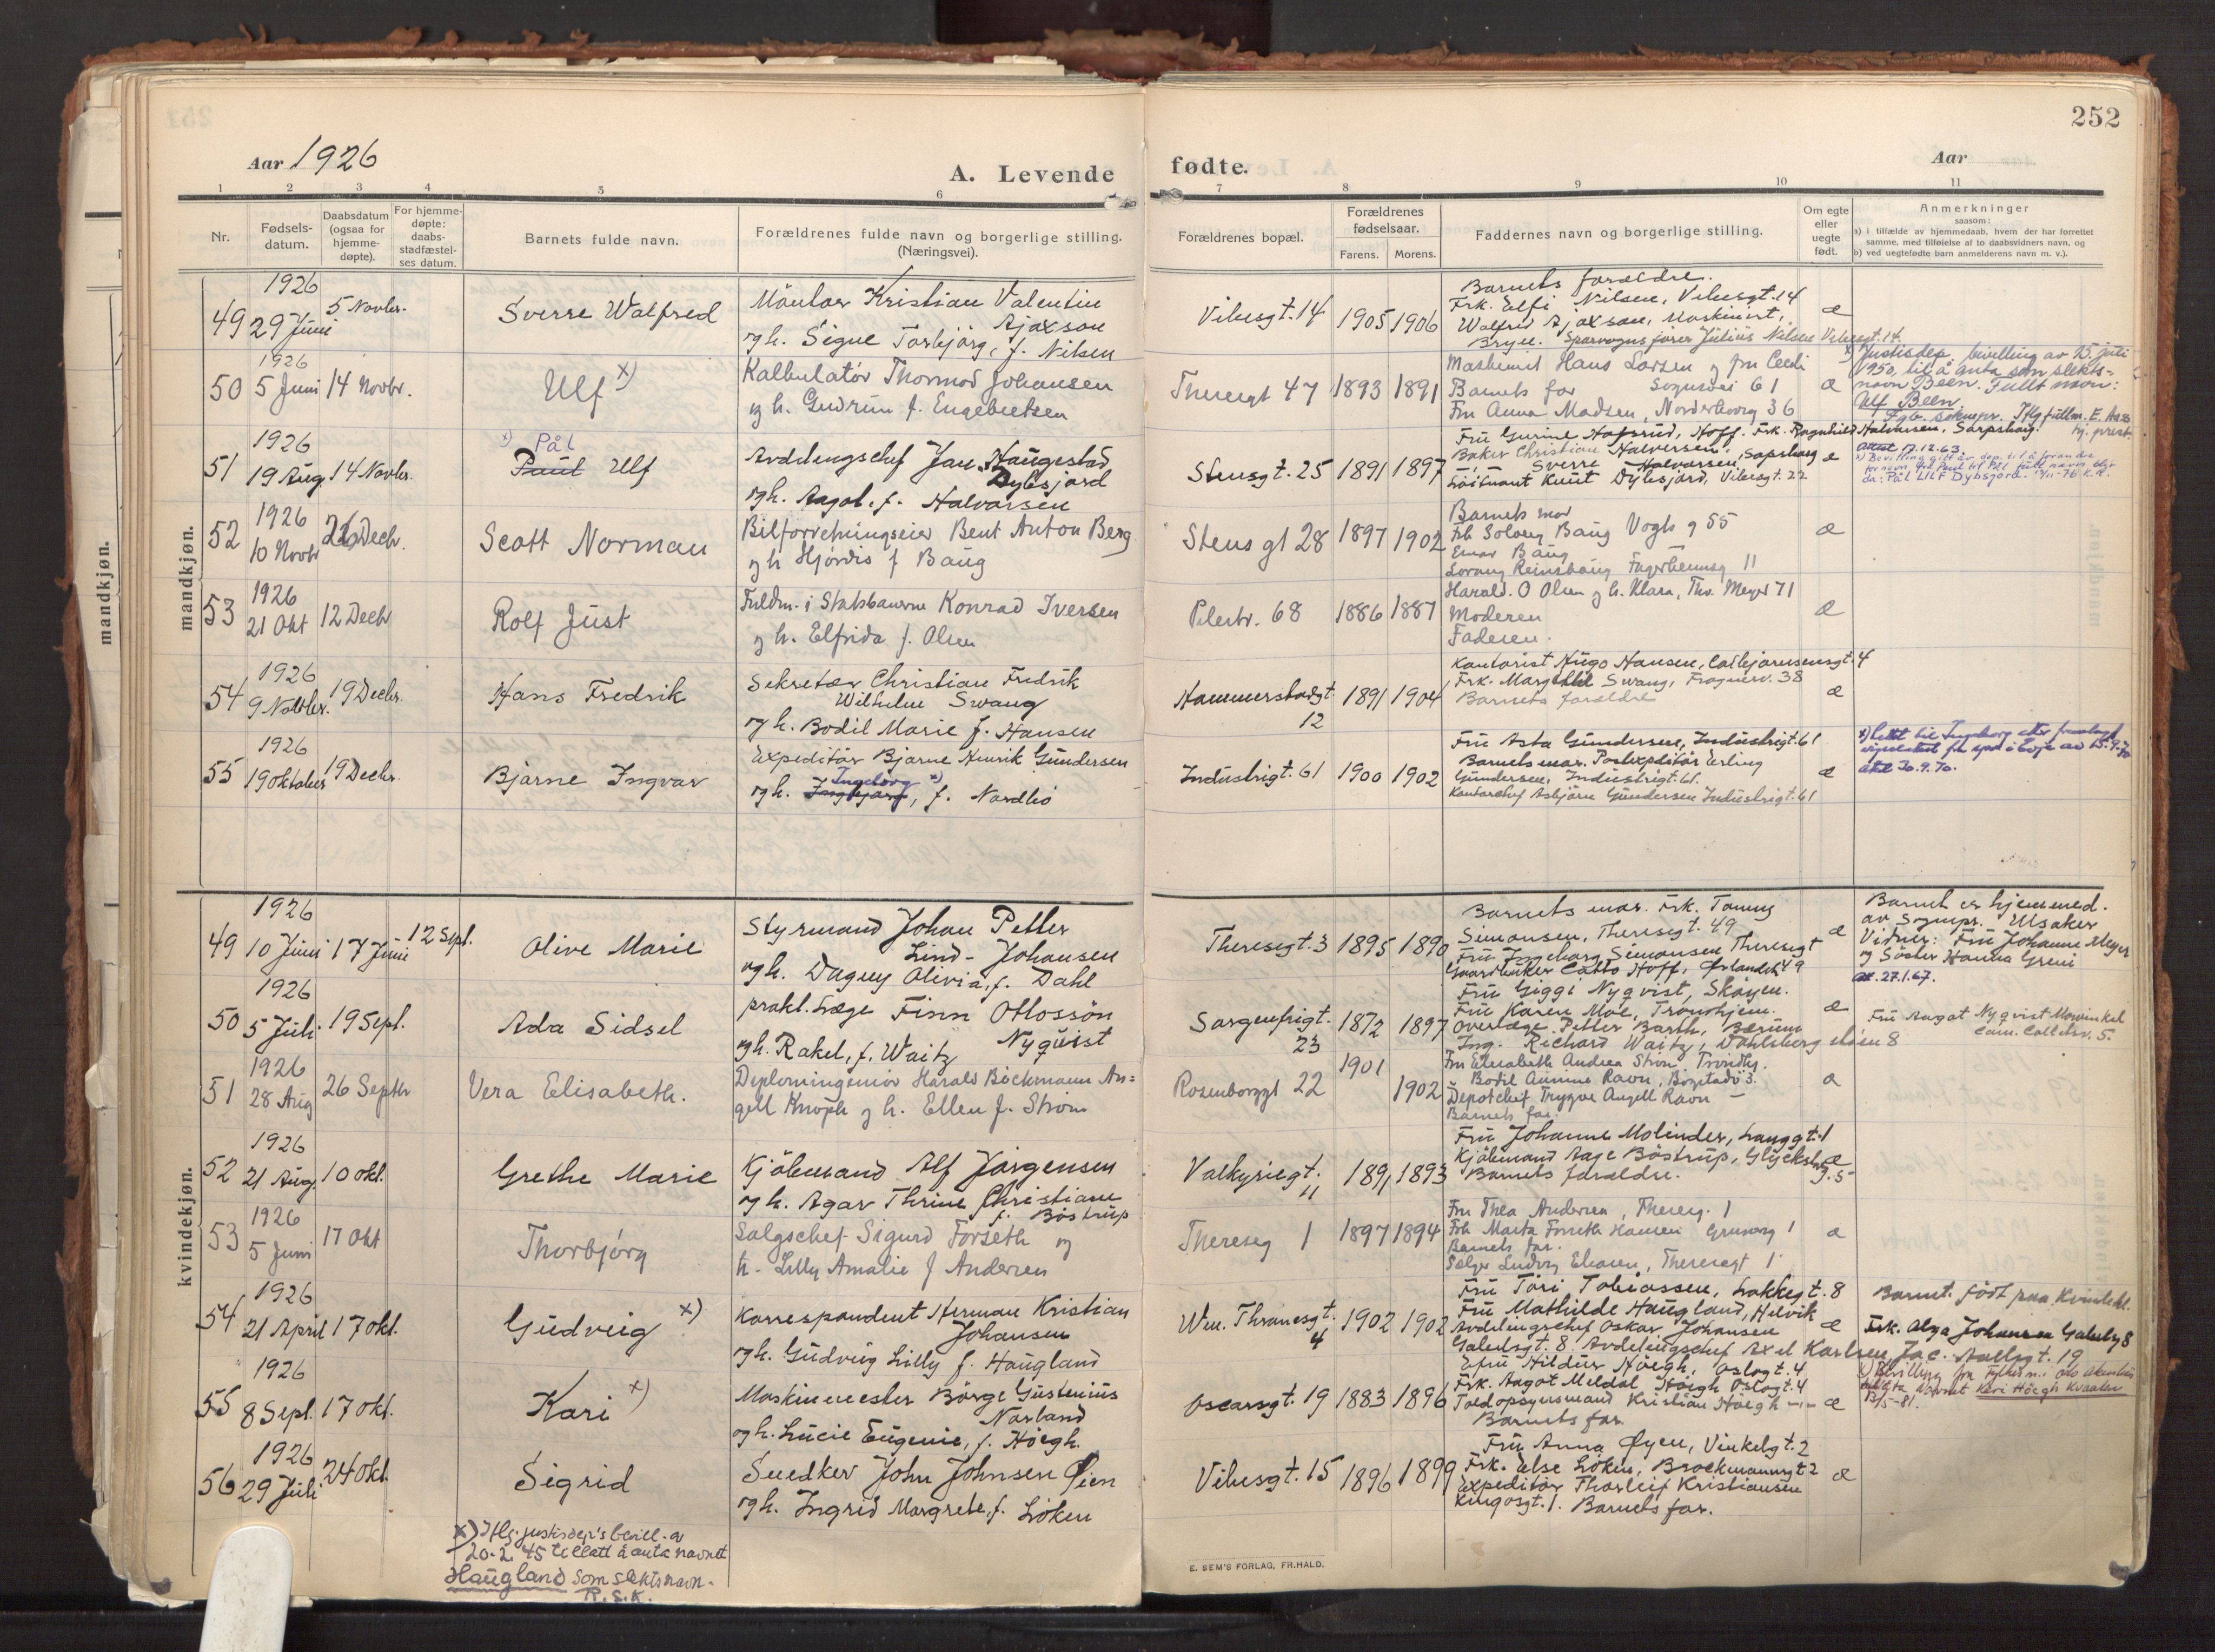 252
Aar 1926
A. Levende fødte.
Aar
1 2 3 4 5 6 7 8 9 10 11
Nr.
Fødsels-
datum.
Daabsdatum
(ogsaa for
hjemme-
døpte).
For hjemme-
døpte:
daabs-
stadfæstel-
ses datum.
Barnets fulde navn.
Forældrenes fulde navn og borgerlige stilling.
(Næringsvei).
Forældrenes bopæl.
Forældrenes
fødselsaar.
Farens. Morens.
Faddernes navn og borgerlige stilling.
Om egte
eller
uegte
født.
Anmerkninger
saasom:
a) i tilfælde av hjemmedaab, hvem der har forrettet
samme, med tilføielse af to daabsvidners navn, og
b) ved uegtefødte barn anmelderens navn m. v.).
mandkjøn.
mandkjøn.
49
1926
29 Juni
5 Novbr.
Sverre Walfred
Montør Kristian Valentin
Ajaxson
og h. Signe Torbjörg, f. Nilsen
Vibesgt. 14
1905 1906
Barnets forældre.
Frk. Elfi Nilsen, Vibesgt. 14
Walfred Ajaxson, Maskinist,
Bryn. Sporvognsfører Julius Nilsen Vibesgt. 14.
æ
50
1926
5 Juni
14 Novbr.
Ulf x)
Kalkulatör Thormod Johansen
og h. Gudrun f. Engebretsen
Theresegt 47
1893 1891
Maskinist Hans Larsen og fru Cecli
Barnets far Sognsvei 61
Fru Anna Madsen, Norderhovg 36
æ
x) Justisdep. bivelling av 25. juli
1950, til å anta som slekts-
navn Been. Fullt navn:
Ulf Been.
51
1926
19 Aug
14 Novbr.
x) Pål
Paul Ulf
Avdelingschef Jan Haugestad
Dybsjord
og h. Aagot, f. Halvorsen
Stensgt. 25
1891 1897
Fru Gurine Hofsrud, Hoff. Frk. Ragnhild Halvorsen, Sarpsborg.
Baker Christian Halvorsen,
Sverre Halvorsen, Sarpsborg
Löitnant Knut Dybsjord, Vibesgt. 22
æ
Attest 17.12.63
52
1926
10 Novbr
26 Decbr.
Scott Norman
Bilforretningseier Bent Anton Berg
og h Hjördis f Baug
Stensgt 28
1897 1902
Barnets mor
Frk Solveig Baug Vogts g 55
Einar Baug
Lorang Reinshaug Fagerheimsg 11
æ
53
1926
21 Okt
12 Decbr
Rolf Just
Fuldm. i Statsbanerne Konrad Iversen
og h. Elfrida f. Olsen
Pilestr. 68
1886 1887
Harald. O Olsen og h. Klara, Thv. Meyer 71
Moderen
Faderen.
æ
54
1926
9 Novbr.
19 Decbr.
Hans Fredrik
Sekretær Christian Fredrik
Wilhelm Swang
og h. Bodil Marie f. Hansen
Hammerstadgt.
12
1891 1904
Kontorist Hugo Hansen, Colbjørnsensgt. 4
Frk. Margith Swang, Frognerv. 38
Barnets forældre
æ
55
1926
19 Oktober
19 Decbr.
Bjarne Ingvar
Expeditör Bjarne Henrik Gundersen
Ingeborg x)
og h. Ingbjørg, f. Nordbö
Industrigt. 61
1900 1902
Fru Asta Gundersen, Industrigt. 61
Barnets mor. Postexpeditör Erling
Gundersen, Industrigt. 61.
Kontorchef Asbjörn Gundersen Industrigt. 61
æ
kvindekjøn.
49
1926
10 Juni
17 Juni
12 Sept.
Olive Marie
Styrmand Johan Petter
Lind-Johansen
og h. Dagny Olivia, f. Dahl
Theresegt. 3
1895 1890
Barnets mor. Frk. Tommy
Simonsen, Theresegt. 49
Fru Ingeborg Simonsen Theresegt
Gaardbruker Catto Hoff, Ørlandet 49
æ
Barnet er hjemmed.
av Sognepr. Ulsaker
Vidner: Fru Johanne Meyer
og Söster Hanna Greni
att. 27.1.67.
50
1926
5 Juli
19 Sept.
Ada Sidsel
prakt. Læge Finn Ottossön
Nyqvist
og h. Rakel, f. Waitz
Sorgenfrigt.
23
1872 1897
Fru Giggi Nyqvist, Skøyen.
Fru Karen Moe, Trondhjem.
Overlæge Petter Barth, Bærum
Ing. Richard Waitz, Dahlsberg skøien 8
æ
Fru Aagot Nyqvist Mowinkel
Cam. Collettsv. 5.
51
1926
28 Aug
26 Septbr
Vera Elisabeth.
Diplomingeniör Harald Böckmann An=
gell Knoph og h. Ellen f. Ström
Rosenborggt 22
1901 1902
Fru Elisabeth Andrea Ström Trondhj.
Bodil Aumine Ravn, Bogstadv 3.
Depotchef Trygve Angell Ravn —
Barnets far.
æ
52
1926
21 Aug.
10 Okt.
Grethe Marie
Kjöbmand Alf Jørgensen
og h. Agar Thrine Christiane
f. Böstrup
Valkyriegt.
11
1891 1893
Fru Johanne Molinder, Langgt. 1
Kjöbmand Aage Böstrup, Glückstadg. 5
Barnets forældre.
æ
53
1926
5 Juni
17 Okt
Thorbjörg
Salgschef Sigurd Forseth og
h. Lilly Amalie f Andersen
Thereseg 1
1897 1894
Fru Thea Andersen, Thereseg. 1
Frk Marta Forseth Hansen Grünerg 1
Barnets far.
Selger Ludvig Eliasen, Theresegt 1
æ
54
1926
21 April
17 Okt.
Gudveig x)
Korrespondent Herman Kristian
Johansen
og h. Gudveig Lilly f. Haugland
Wm. Thranesgt.
4
1902 1902
Fru Tori Tobiassen, Lakkegt. 8
Fru Mathilde Haugland, Helvik
Avdelingschef Oskar Johansen
Gabelsgt. 8. Avdelingschef Axel Karlsen, Jac. Aallsgt. 19
æ
Barnet født paa Kvindekl.
Frk. Olga Johansen Gabelsg 8
55
1926
8 Sept.
17 Okt.
Kari x)
Maskinmester Börge Gustenius
Norland
og h. Lucie Eugenie, f. Höegh.
Oscarsgt. 19
1883 1896
Fru Hildur Höegh, Oslogt. 4
Frk. Aagot Meldal Höegh Oslogt. 4
Toldopsynsmand Kristian Höegh —"—
Barnets far.
æ
56
1926
29 Juli
24 Okt.
Sigrid
Snedker John Johnsen Øien
og h. Ingrid Margrete, f. Löken
Vibesgt. 15
1896 1899
Fru Anna Øyen, Vinkelgt. 2
Frk. Else Löken, Brockmannsgt 2
Expeditör Thorleif Kristiansen
Kingosgt. 1. Barnets far.
æ
x) Iflg. justisdep's bevill. av
20.2.45 tillatt å anta navnet
Haugland som slektsnavn.
R.S.K.
E. SEM'S FORLAG, FR.HALD.